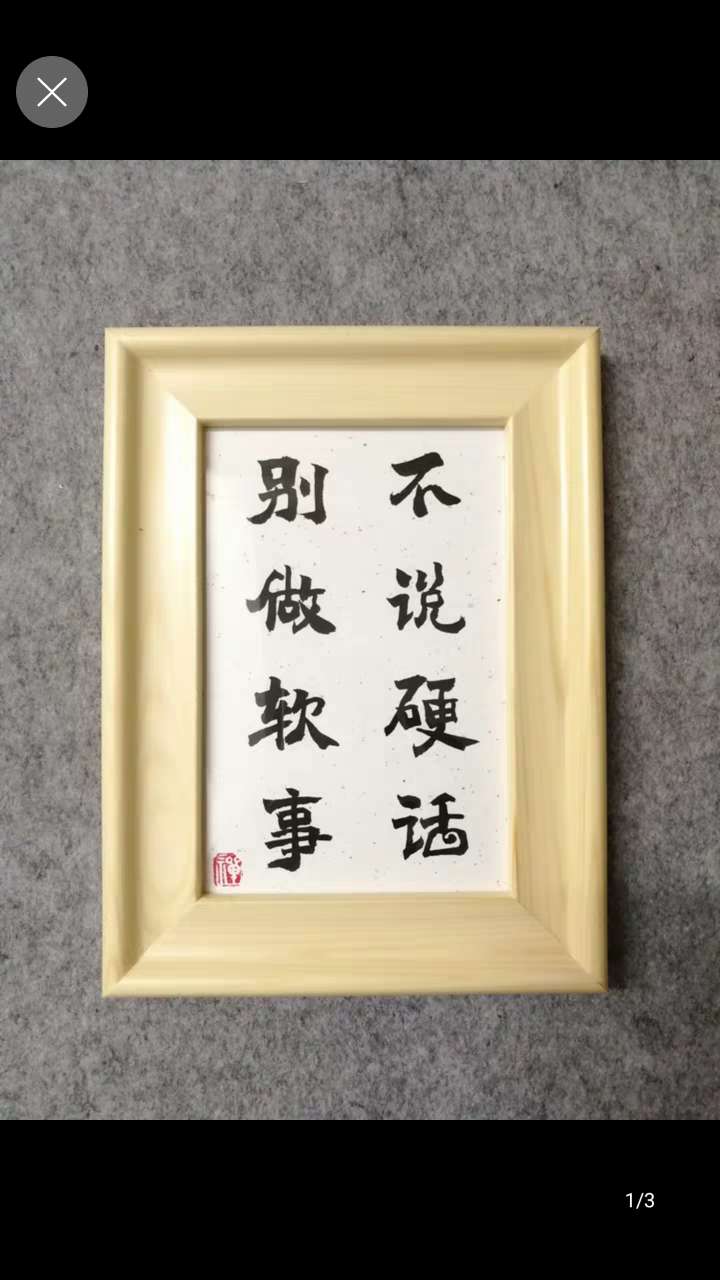 不说硬话
别做软事
禅
1/3